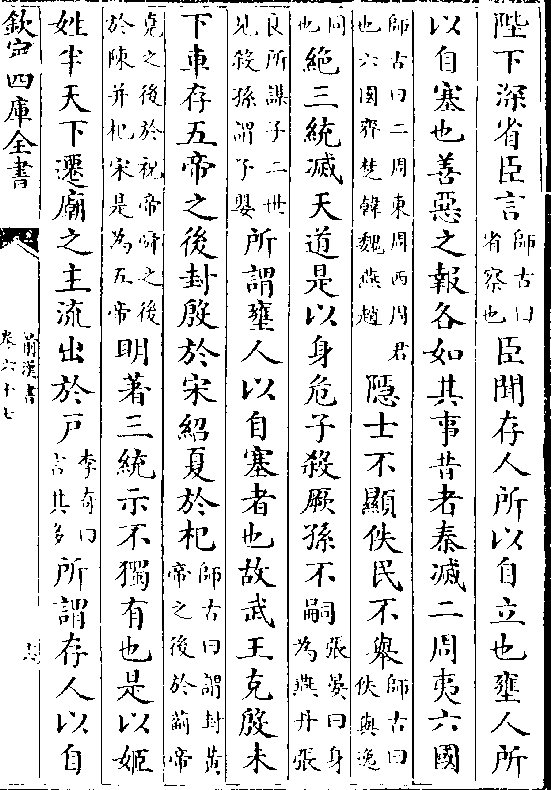 陛下深省臣言師古曰省察也臣聞存人所以自立也壅人所
以自塞也善惡之報各如其事昔者秦滅二周夷六國
師古曰二周東周西周君也六國齊楚韓魏燕趙隱士不顯佚民不舉師古曰佚與逸
同也絶三統滅天道是以身危子殺厥孫不嗣張晏曰身為燕丹張
良所謀子二世見殺孫謂子嬰所謂壅人以自塞者也故武王克殷未
下車存五帝之後封殷於宋紹夏於杞師古曰謂封黄帝之後於薊帝
堯之後於祝帝舜之後於陳并杞宋是為五帝明著三統示不獨有也是以姬
姓半天下遷廟之主流出於戸李奇曰言其多所謂存人以自
欽定四庫全書
前漢書
卷六十七